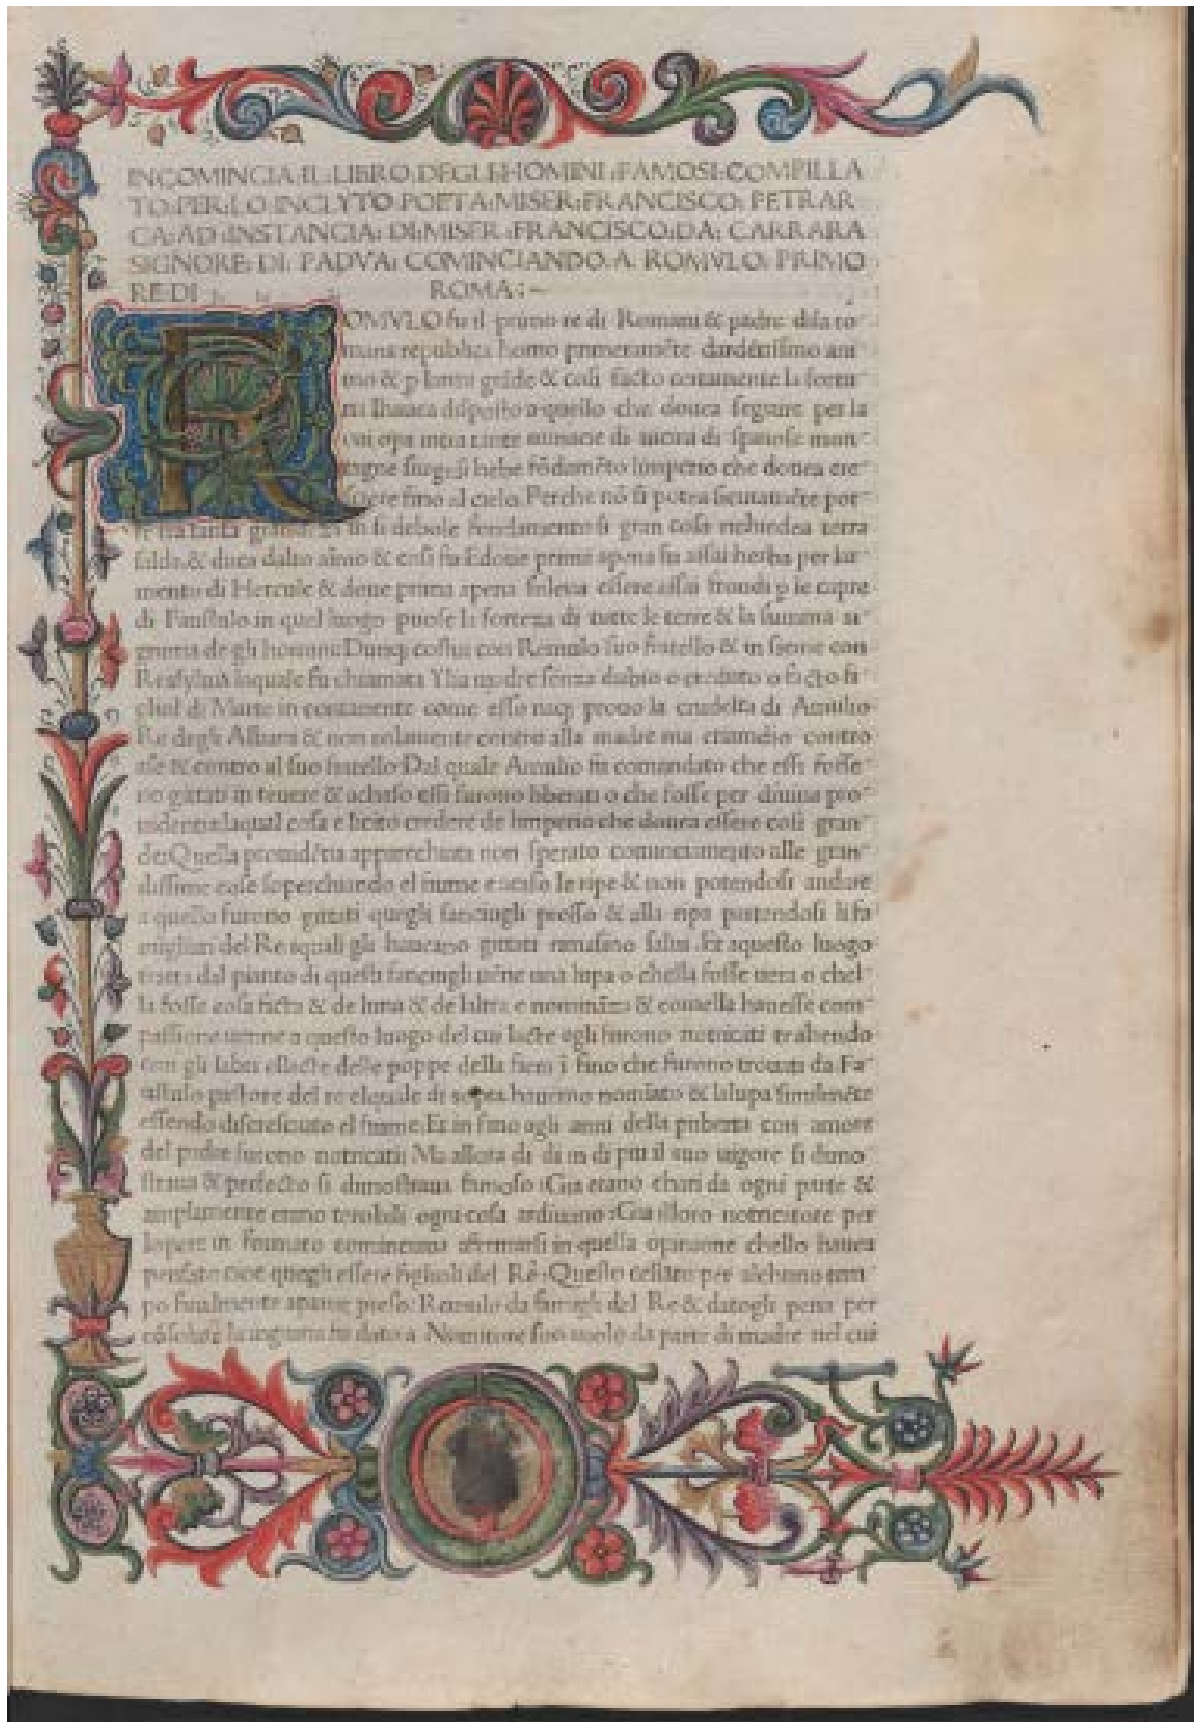 INCOMINCIA·IL·LIBRO·DEGLI·HOMINI·FAMOSI·COMPILLA
TO·PER·LO·INCLYTO·POETA·MISER·FRANCISCO·PETRAR
CA·AD·INSTANCIA·DI·MISER·FRANCISCO·DA·CARRARA
SIGNORE·DI·PADVA·COMINCIANDO·A·ROMVLO·PRIMO
RE·DI ROMA:~
ROMVLO fu il primo re di Romani & padre dila ro
mana republica homo dardentissimo ani
mo & p & cosi facto certamente la fortu
na lhauea disposto a quello che douea seguire per la
cui opa
hebe fōdamēto limperio che douea cre
scere fino al cielo. Perche nō si potea por
si debole fondamento si gran cosa richiedea terra
salda & duca dalto aīmo & cosi fu. E doue prima apena fu assai herba per iu
mento di Hercule & doue prima apena soleua essere assai frondi p le capre
di Faustulo in quel luogo puose la forteza di tutte le terre & la summa si
gnoria de gli homini. Dunq; costui con Remulo suo fratello & in sieme con
Reasylvia laquale fu chiamata Ylia madre senza dubio o creduto o facto fi
gliol di Marte in contanente come esso naq; prouo la crudelta di Amulio
Re degli Albani & non solamente contro alla madre ma etiamdio contro
asse & contro al suo fratello. Dal quale Amulio fu comandato che essi fosse
no gittati in teuere & achaso essi furono liberati o che fosse per diuina pro
uidentia laqual cosa e licito credere de limperio che douea essere cosi gran
de: Quella prouidētia apparechiata non sperato cominciamento alle gran
dissime cose soperchiando el fiume acaso le ripe & non potendosi andare
a quello furono gittati quegli fanciugli presso & alla ripa partendosi li fa
migliari del Re iquali gli haueano gittati rimasino salui. Et aquesto luogo
tratta dal pianto di questi fanciugli uēne una lupa o chella fosse uera o chel
la fosse cosa ficta & de luna & de laltra e nomināza & hauesse com
passione uenne a questo luogo del cui lacte egli furono notricati trahendo
con gli labri ellacte delle poppe della fiera ī fino che furono trouati da Fa
ustulo pastore del re elquale di sopra hauemo nomīato & lalupa similmēte
essendo discresciuto el fiume. Et in fino agli anni della puberta con amore
del padre furono notricati: Ma allora di di in di piu il suo uigore si dimo
straua & perfecto si dimostraua famoso: Gia erano chari da ogni parte &
amplamente erano terribili ogni cosa ardiuano: Gia illoro notricatore per
lopere in cominciaua afermarsi in quella opinione chello hauea
pensato cioe quegli essere figliuoli del Re: Questo cessato per alchuno tem
po finalmente apparue preso: Remulo da famigli del Re & datogli pena per
la ingiuria fu dato a Numitore suo auolo da parte di madre nel cui